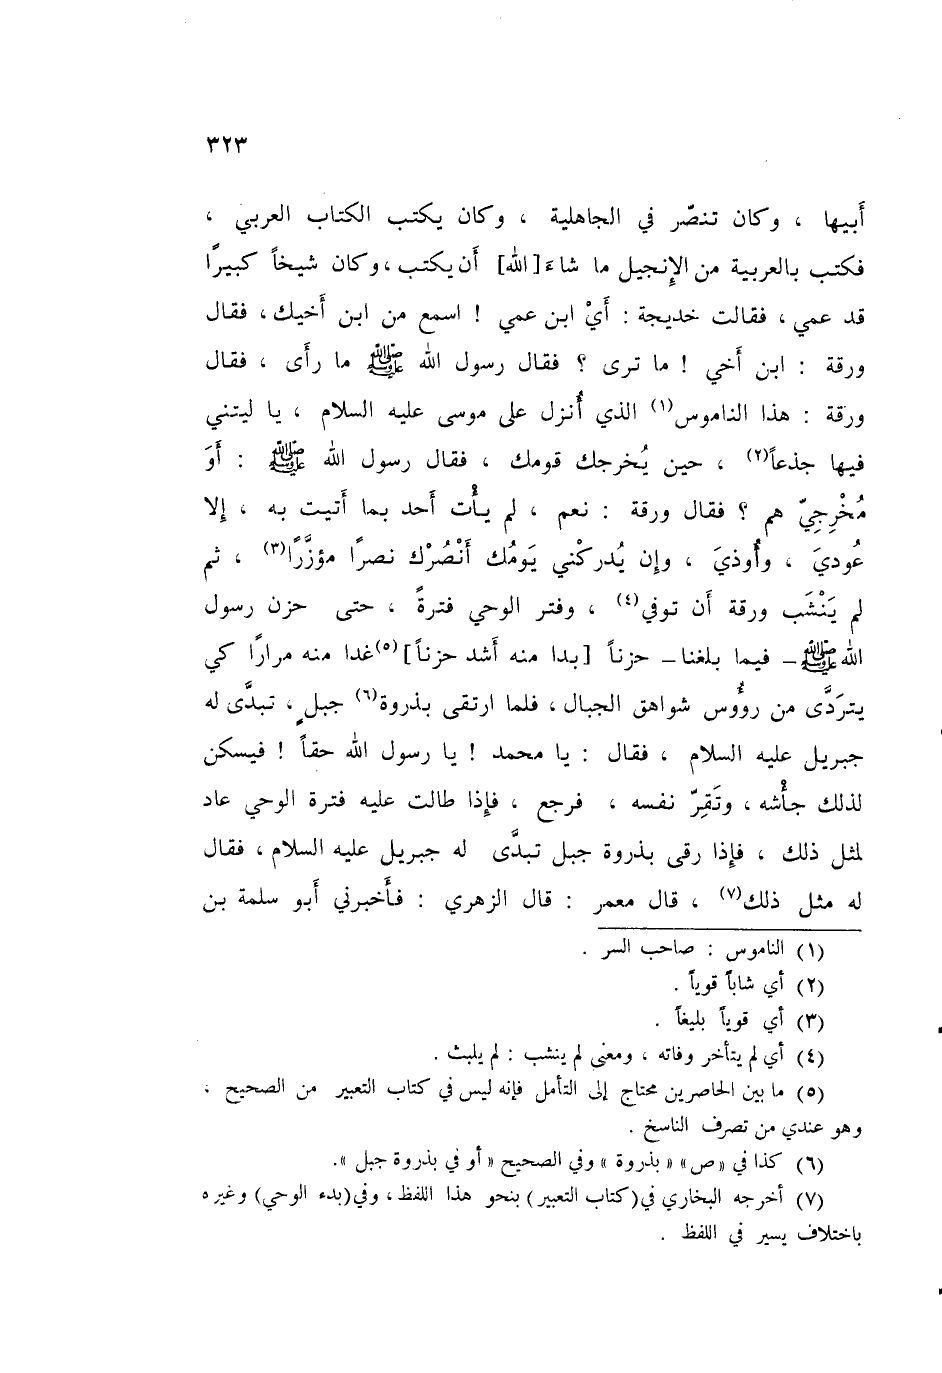 ٣٢٣
أَبيها ، وكان تنصّر في الجاهلية ، وكان يكتب الكتاب العربي ،
فكتب بالعربية من الإِنجيل ما شاءَ [الله] أَن يكتب ، وكان شيخاً كبيرًا
قد عمي ، فقالت خديجة : أَيْ ابن عمي ! اسمع من ابن أَخيك ، فقال
ورقة : ابن أَخي ! ما ترى ؟ فقال رسول الله ﷺ ما رأَى ، فقال
ورقة : هذا الناموس(١) الذي أُنزل على موسى عليه السلام ، يا ليتني
فيها جذعاً(٢) ، حين يُخرجك قومك ، فقال رسول الله ﷺ : أَوَ
مُخْرِجِيّ هم ؟ فقال ورقة : نعم ، لم يأْت أَحد بما أَتيت به ، إلا
عُوديَ ، وأُوذيَ ، وإن يُدركْني يَومُك أَنْصُرْك نصرًا مؤزَّرًا(٣) ، ثم
لم يَنْشَب ورقة أَن توفي(٤) ، وفتر الوحي فترةً ، حتى حزن رسول
الله ﷺ – فيما بلغنا – حزناً [بدا منه أَشد حزناً](٥) غدا منه مرارًا كي
يتردَّى من رؤُوس شواهق الجبال ، فلما ارتقى بذروة(٦) جبلٍ ، تبدَّى له
جبريل عليه السلام ، فقال : يا محمد ! يا رسول الله حقاً ! فيسكن
لذلك جأْشه ، وتَقِرّ نفسه ، فرجع ، فإذا طالت عليه فترة الوحي عاد
لمثل ذلك ، فإذا رقى بذروة جبل تبدَّى له جبريل عليه السلام ، فقال
له مثل ذلك(٧) ، قال معمر : قال الزهري : فأَخبرني أَبو سلمة بن
(١) الناموس : صاحب السر .
(٢) أي شاباً قوياً .
(٣) أي قوياً بليغاً .
(٤) أي لم يتأخر وفاته ، ومعنى لم ينشب : لم يلبث .
(٥) ما بين الحاصرين محتاج إلى التأمل فإنه ليس في كتاب التعبير من الصحيح ،
وهو عندي من تصرف الناسخ .
(٦) كذا في «ص» « بذروة » وفي الصحيح « أو في بذروة جبل ».
(٧) أخرجه البخاري في (كتاب التعبير) بنحو هذا اللفظ ، وفي (بدء الوحي) وغيره
باختلاف يسير في اللفظ .